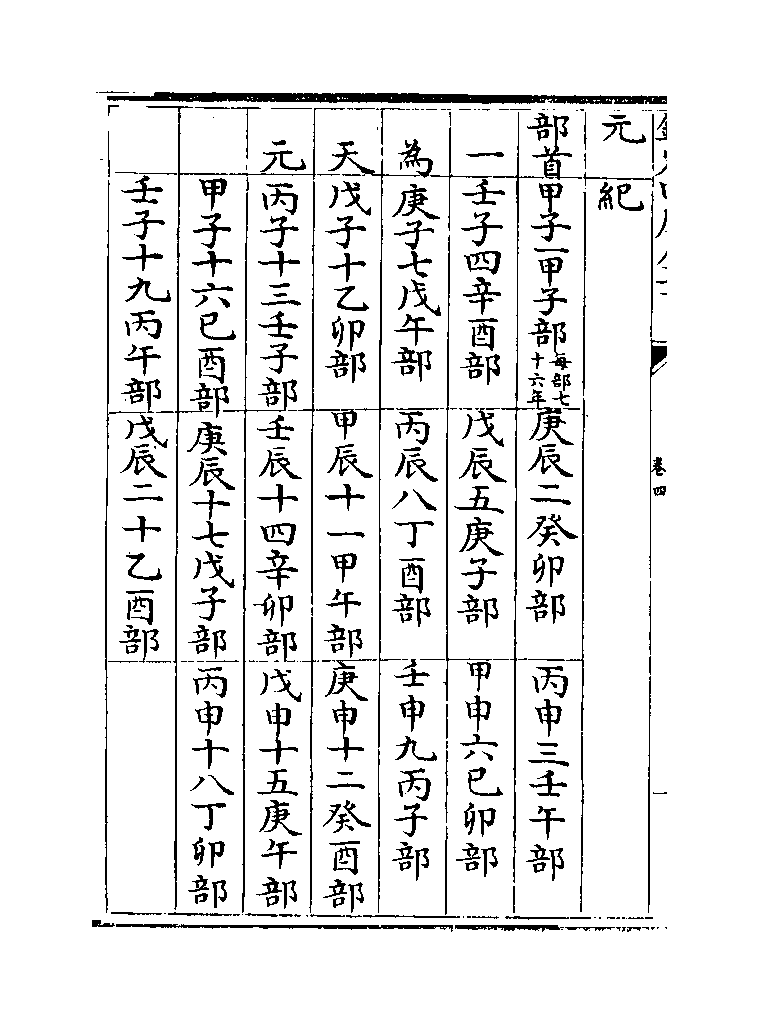 元紀
部首甲子一甲子部每部七十六年庚辰二癸卯部丙申三壬午部
一壬子四辛酉部戊辰五庚子部甲申六已卯部
為庚子七戊午部丙辰八丁酉部壬申九丙子部
天戊子十乙卯部甲辰十一甲午部庚申十二癸酉部
元丙子十三壬子部壬辰十四辛卯部戊申十五庚午部
甲子十六已酉部庚辰十七戊子部丙申十八丁卯部
壬子十九丙午部戊辰二十乙酉部
卷四